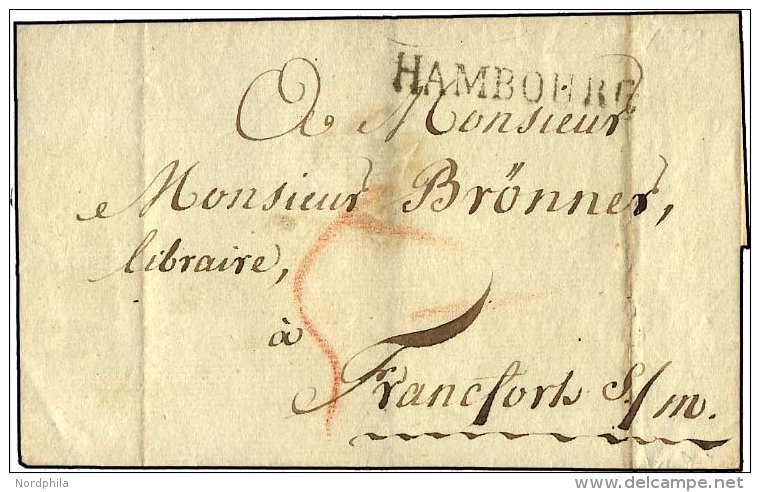 HAMBOURG
A Monsieur
Monsieur Brönner,
libraire,
à
Francforth s/m.
Nordphila
delcampe.net